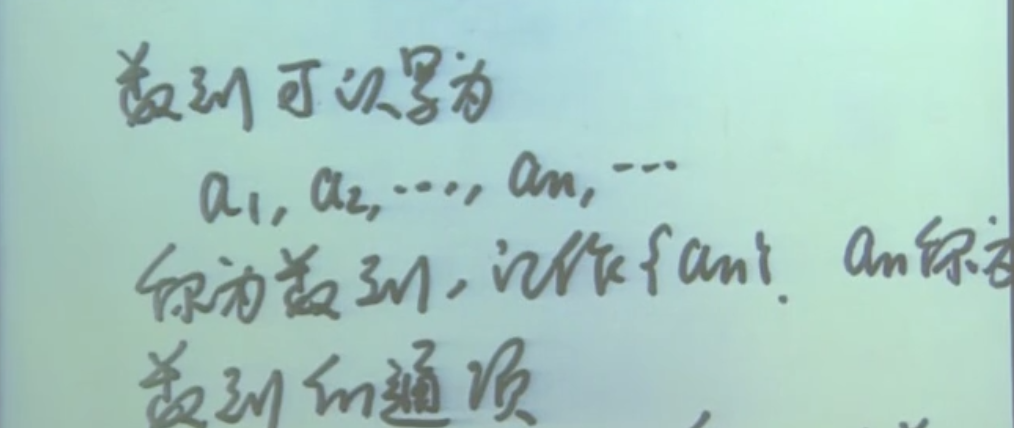 数列可以写为
a₁, a₂, ⋯, aₙ, ⋯
称为数列, 记作{aₙ}. aₙ称为
数列的通项